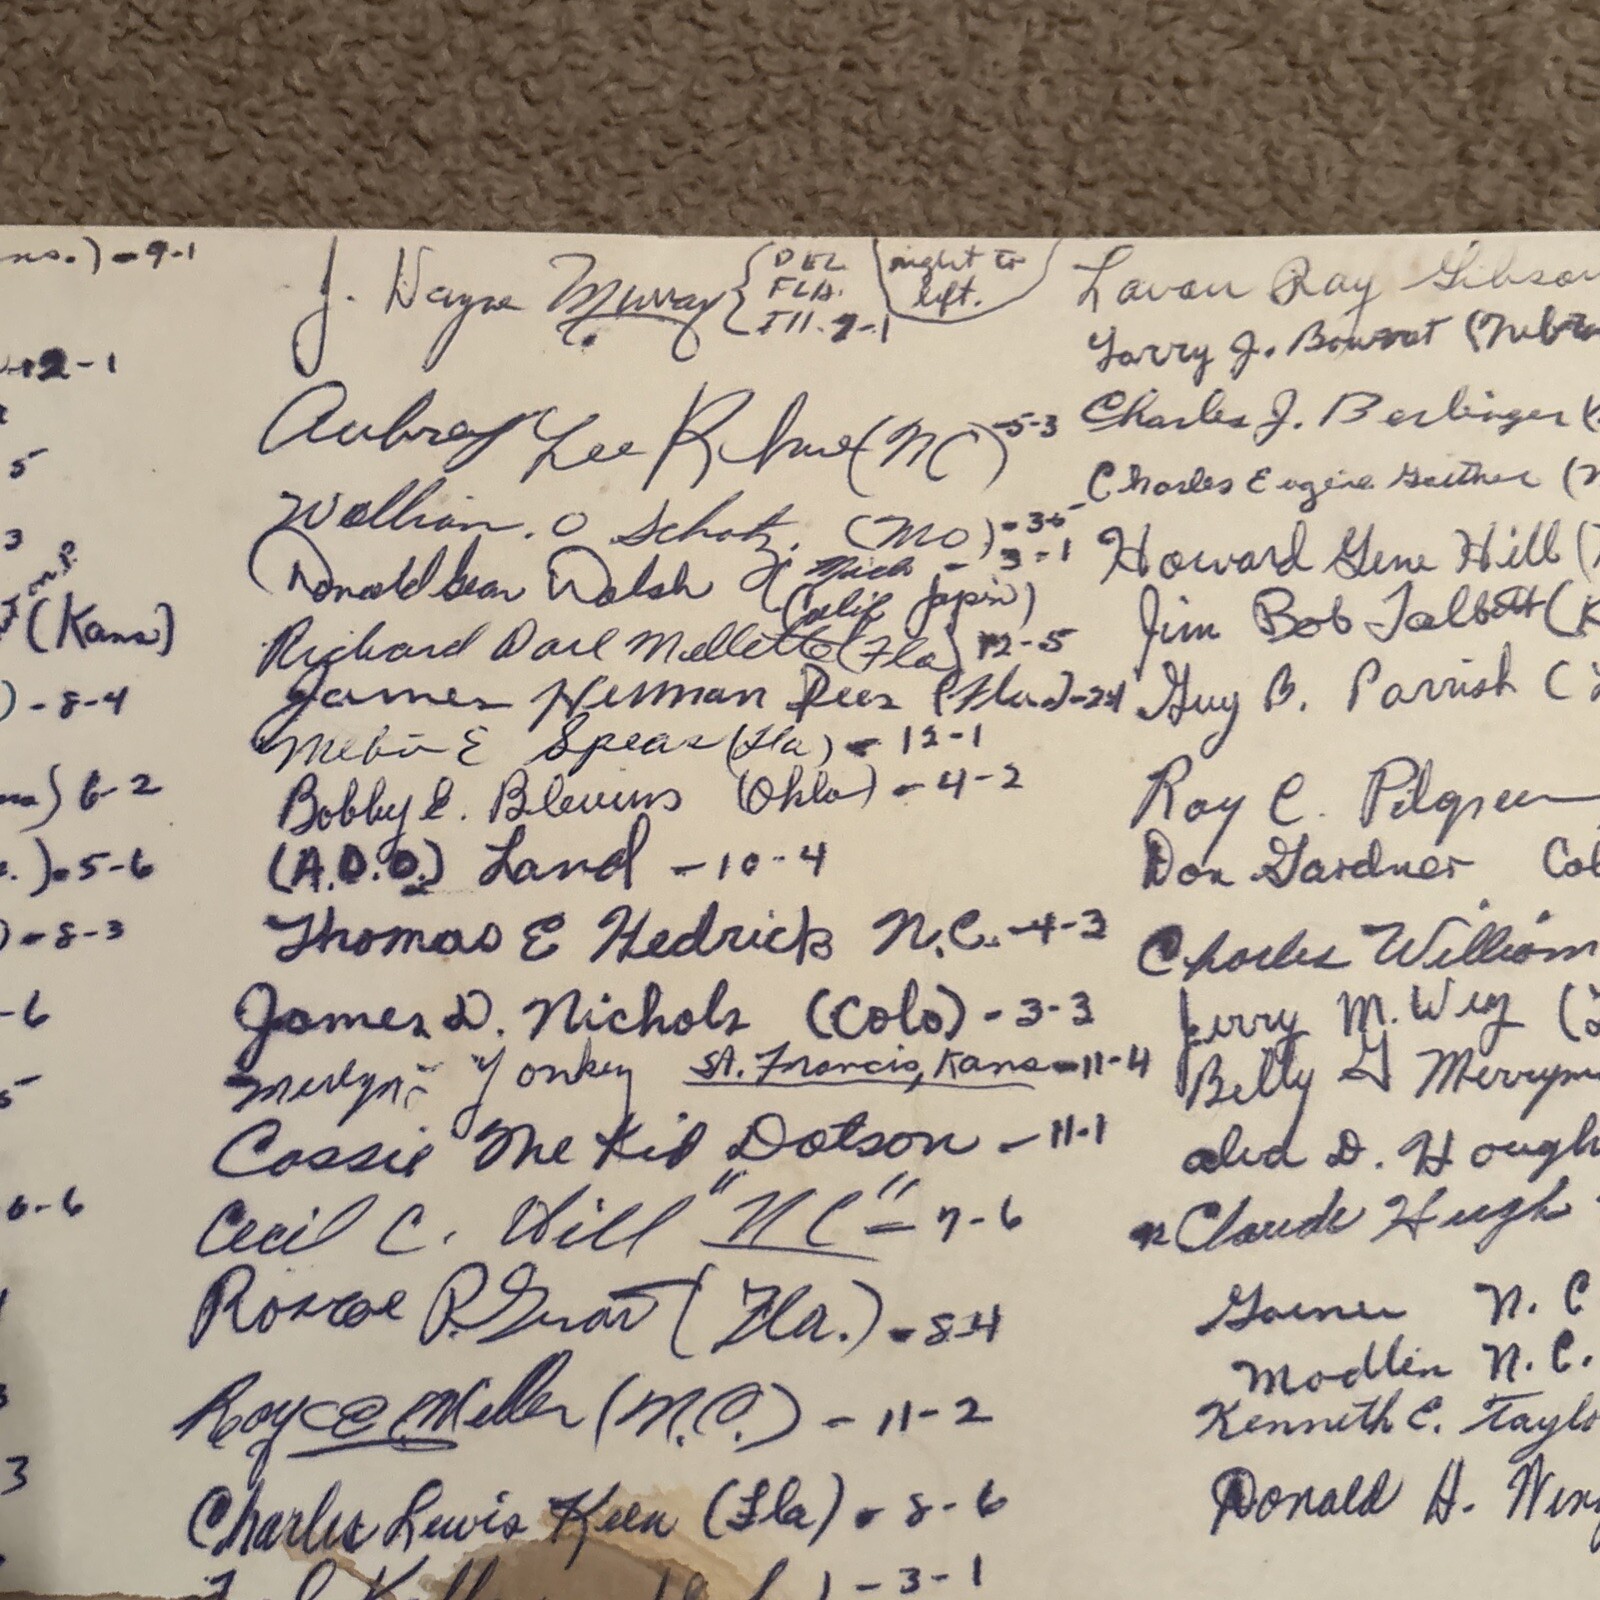 ns.) - 9-1
2-1
5
3
(Kans)
) - 8-4
) 6-2
.) - 5-6
) - 8-3
-6
5
6-6
3
J. Wayne Murray { DEL FLA. Ill. 9-1 (right to left.)
Aubrey Lee (NC) - 5-3
William O Schatz. (MO) - 3-5
Donald Sean Walsh (Mich - 3-1
(Calif Japan)
Richard Darl Mellette (Fla) 12-5
James Herman Rees (Fla.) - 2-4
Melvin E Spears (Fla) - 12-1
Bobby E. Blevins (Ohio) - 4-2
(A.D.O.) Land - 10-4
Thomas E Hedrick N.C. - 4-3
James D. Nichols (Colo) - 3-3
Merlyn Yonkey St. Francis, Kans - 11-4
Cassie "The Kid Dotson - 11-1
Cecil C. Hill "NC" - 7-6
Roscoe P. Grant (Fla.) - 8-4
Royce Miller (N.C.) - 11-2
Charles Lewis Keen (Fla) - 8-6
- 3-1
Lavon Ray Gibson
Larry J. (Nebr
Charles J. Berlinger (
Charles Eugene (
Howard Gene Hill (
Jim Bob Talbott (K
Guy B. Parrish (
Roy C. Pilgreen
Don Gardner Col
Charles William
Jerry M. Wey (
Billy G Merryma
D. Hough
Claude Hugh
Garner N.C
Modlin N.C.
Kenneth C. Taylo
Donald H. Win